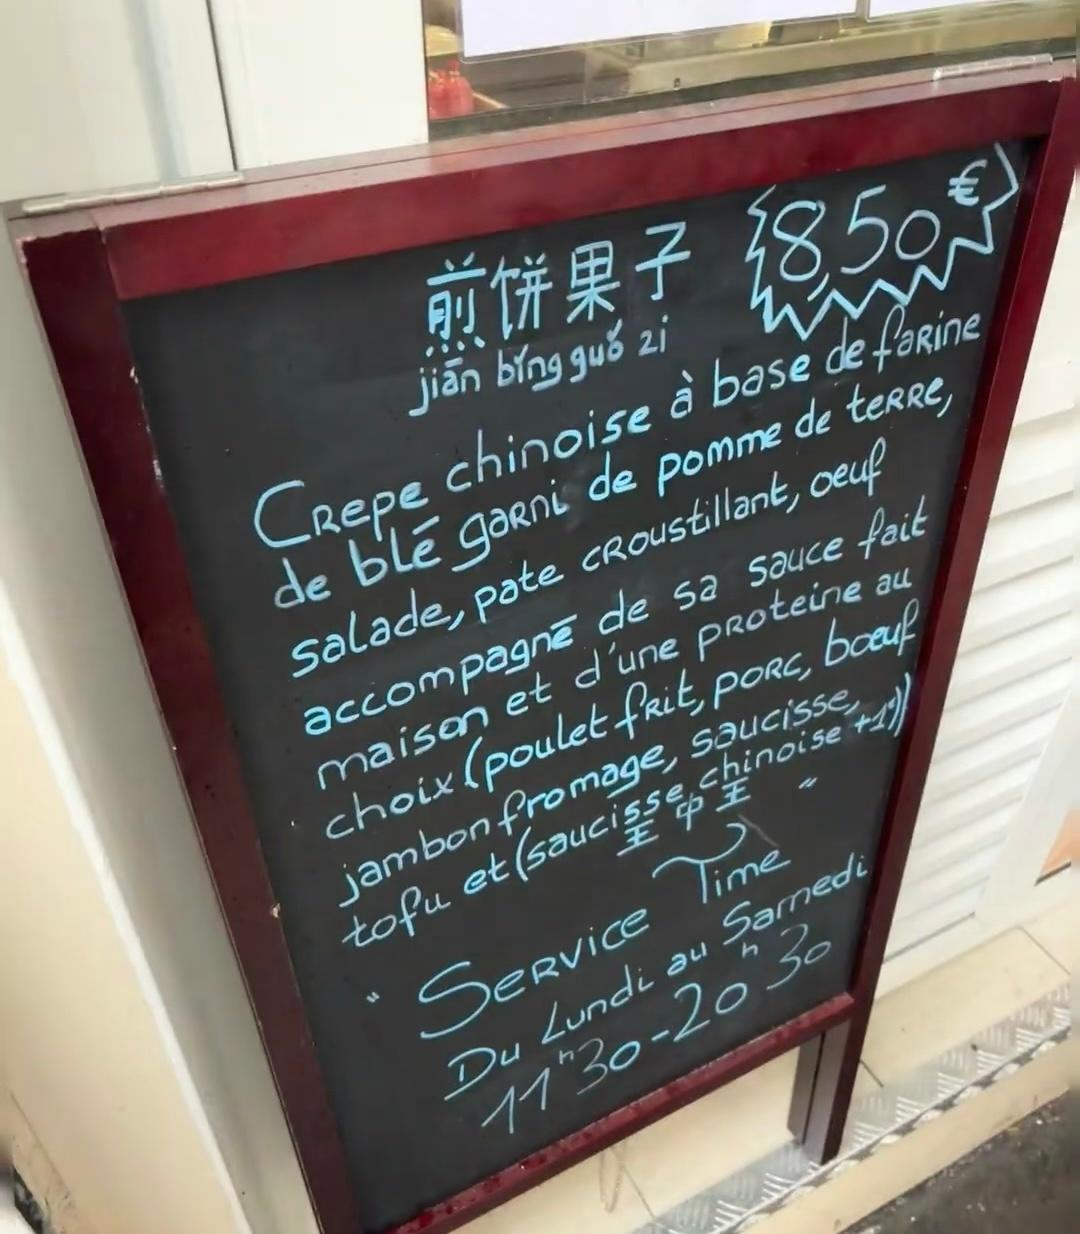 煎饼果子
8,50€
jiān bǐng guǒ zi
Crepe chinoise à base de farine
de blé garni de pomme de terre,
salade, pate croustillant, oeuf
accompagné de sa sauce fait
maison et d'une proteine au
choix (poulet frit, porc, bœuf
jambon fromage, saucisse,
tofu et (saucisse chinoise +1€))
王中王
" Service Time "
Du Lundi au Samedi
11h30-20h30